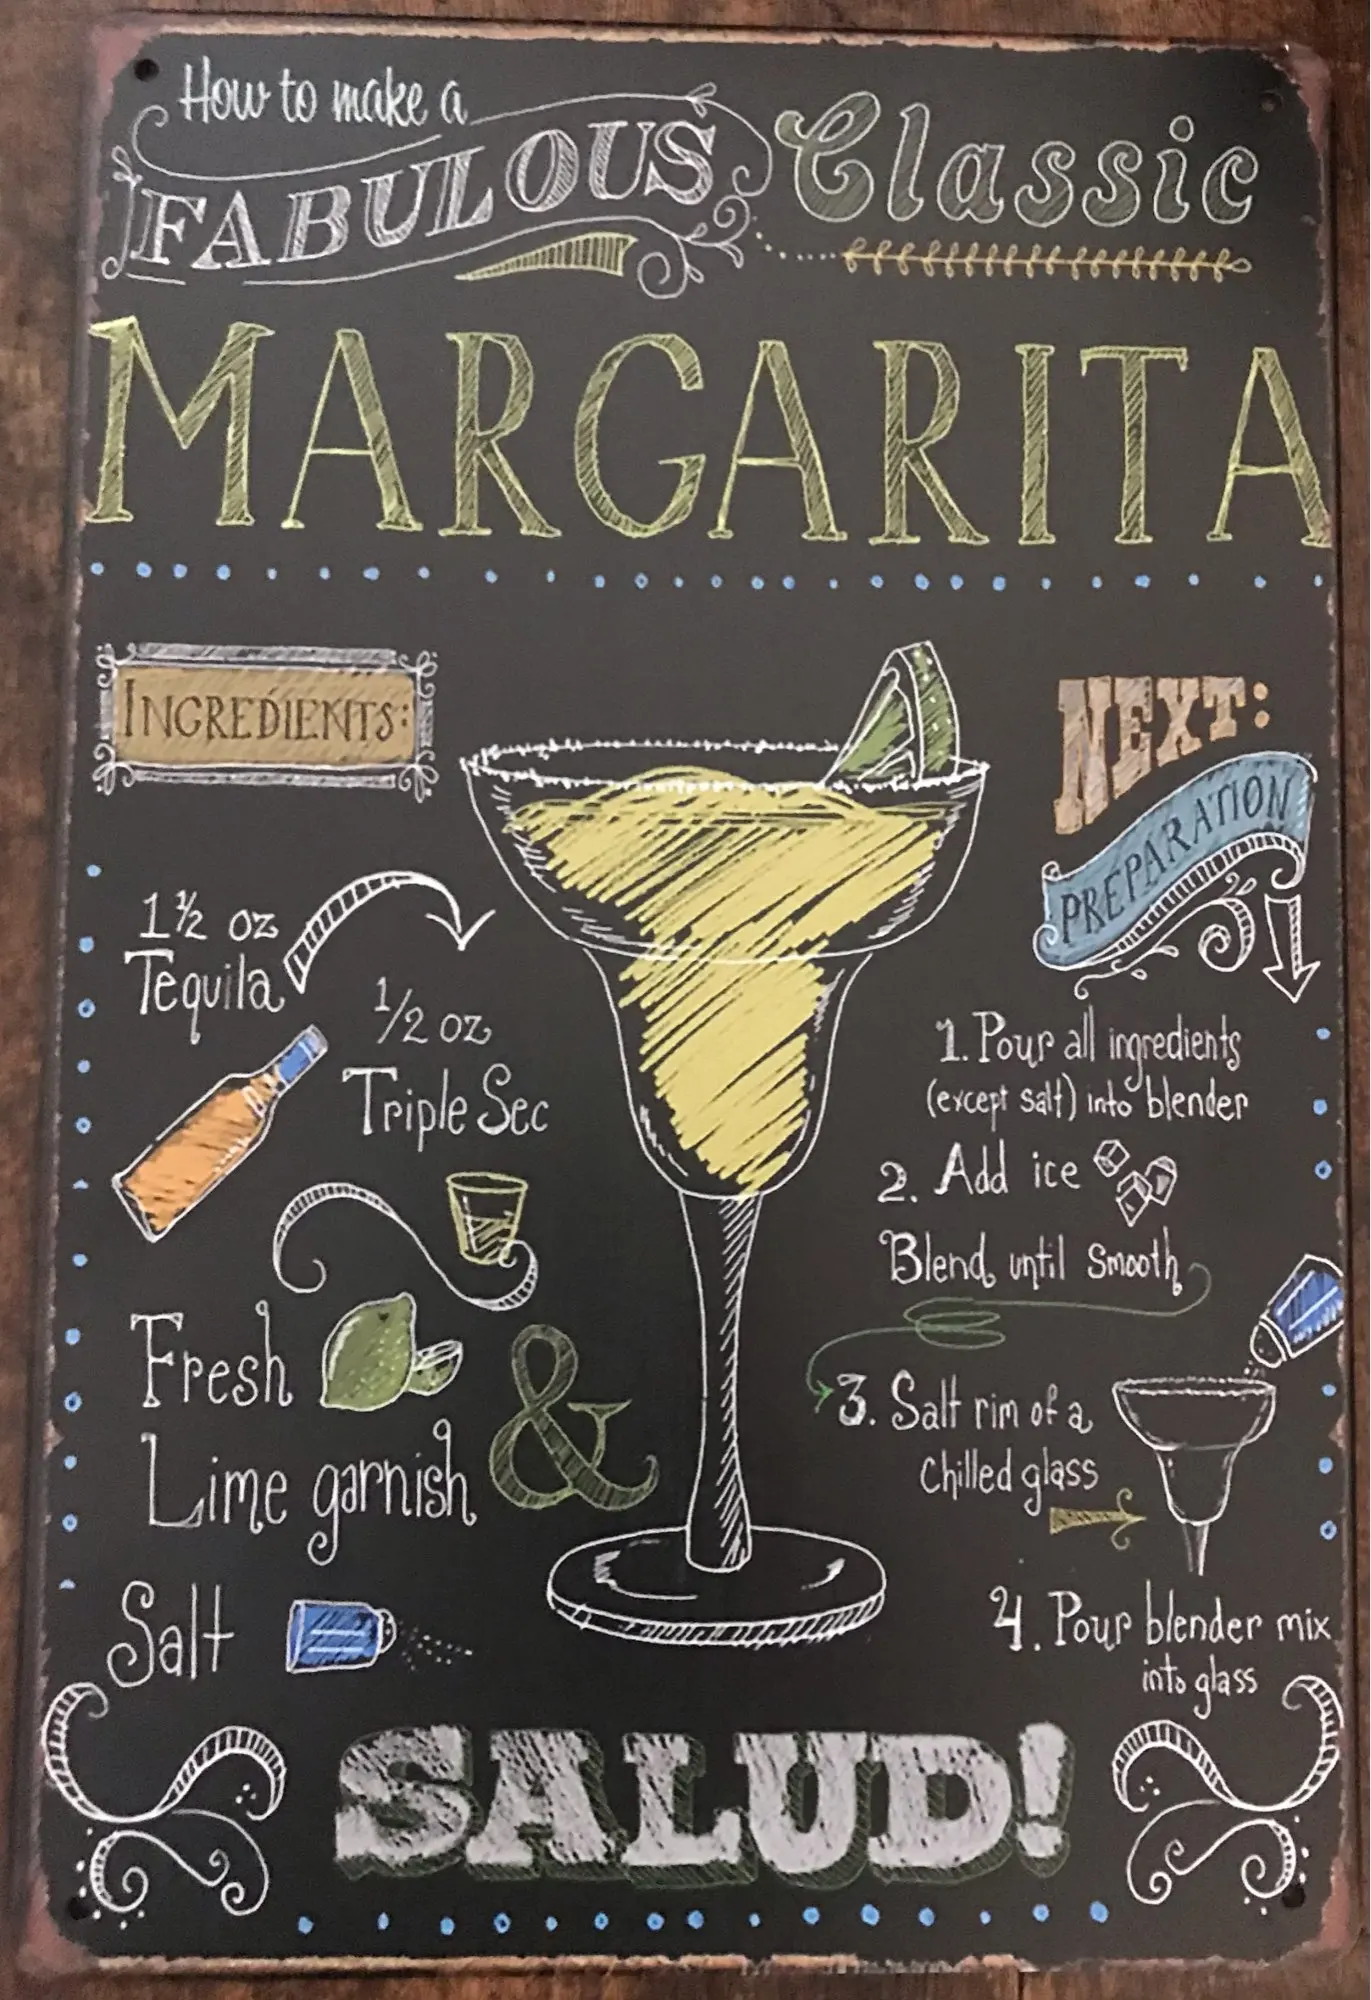 How to make a
FABULOUS Classic
MARGARITA
INGREDIENTS:
1 ½ oz
Tequila
1/2 oz
Triple Sec
Fresh
Lime garnish
&
Salt
NEXT:
PREPARATION
1. Pour all ingredients
(except salt) into blender
2. Add ice
Blend until smooth
3. Salt rim of a
chilled glass
4. Pour blender mix
into glass
SALUD!